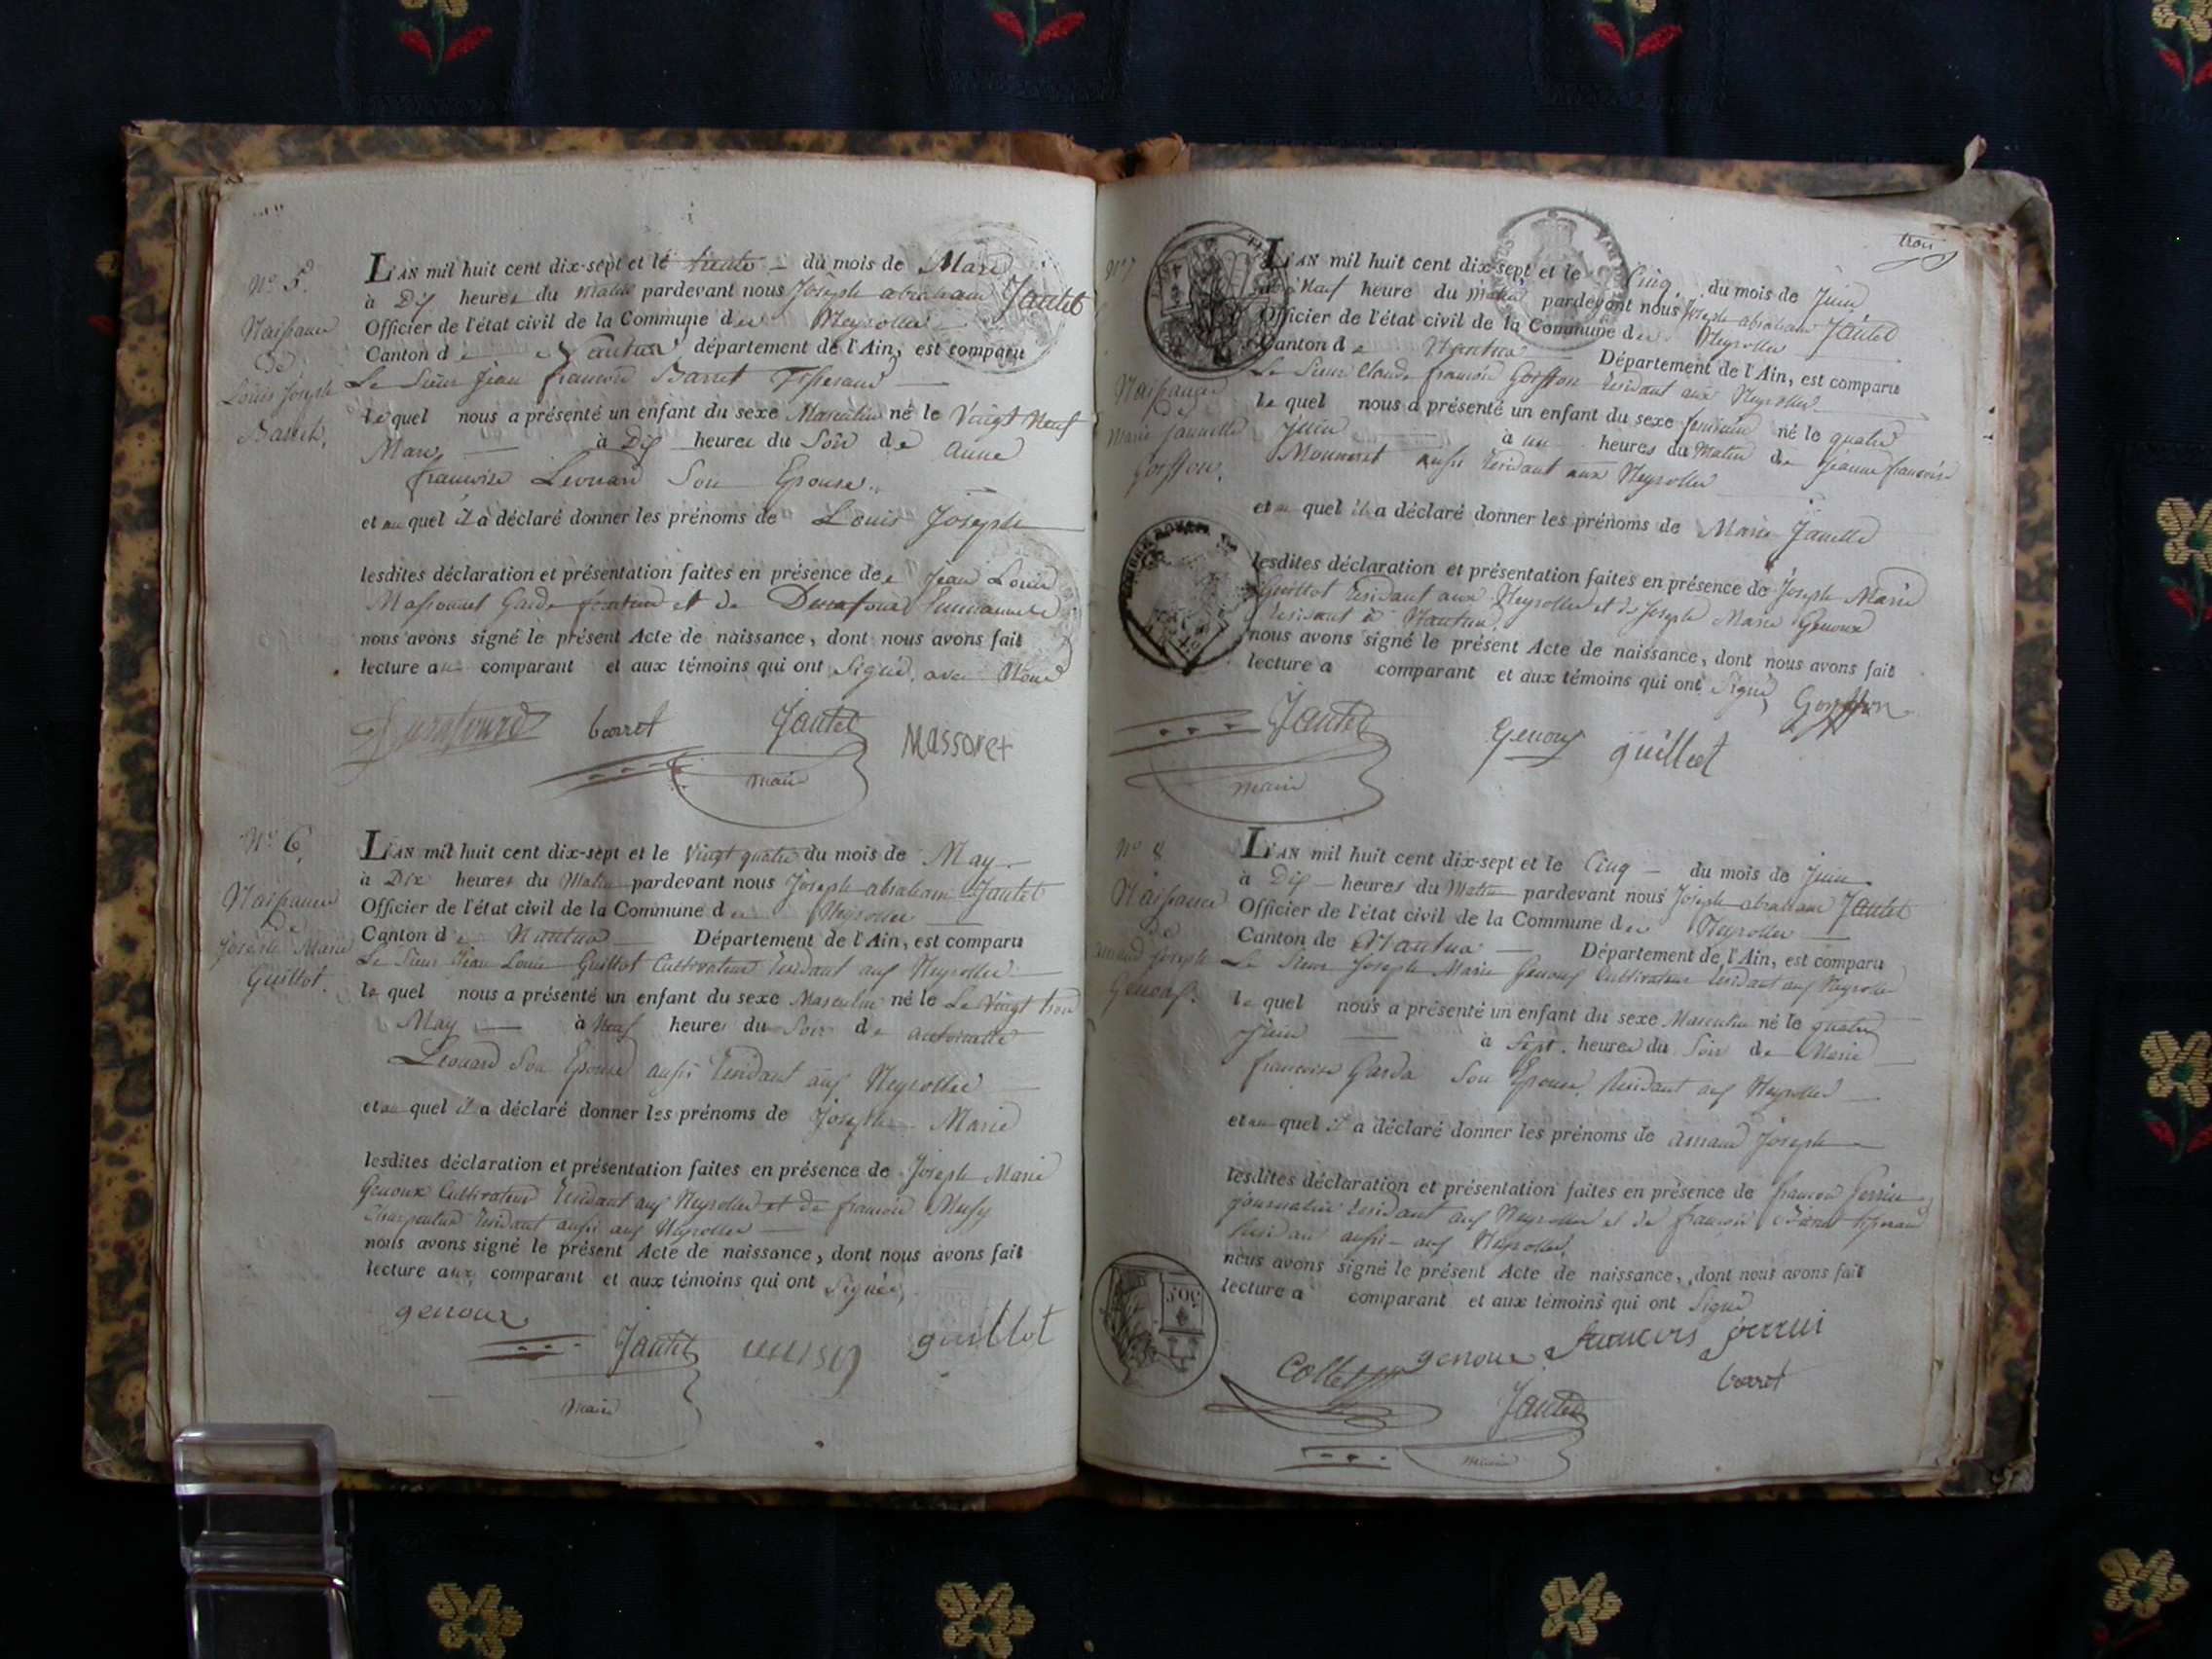 N° 5.
Naissance
de
Louis Joseph
Barret.
L'AN mil huit cent dix-sept et le trente du mois de Mars
à Dix heures du Matin pardevant nous Joseph abraham Jautet
Officier de l'état civil de la Commune des Neyrolles
Canton de Nantua, département de l'Ain, est comparu
Le Sieur Jean françois Barret Tisserand
lequel nous a présenté un enfant du sexe Masculin né le Vingt Neuf
Mars à Dix heures du Soir de Anne
françoise Leonard Son Epouse
et au quel il a déclaré donner les prénoms de Louis Joseph
lesdites déclaration et présentation faites en présence de Jean Louis
Massonnet Garde forestier et de Durafour Emmanuel
nous avons signé le présent Acte de naissance, dont nous avons fait
lecture au comparant et aux témoins qui ont Signé, avec Nous
Durafour barret Jautet Massonet
maire
N° 6.
Naissance
De
Joseph Marie
Guillot.
L'AN mil huit cent dix-sept et le Vingt quatre du mois de May
à Dix heures du Matin pardevant nous Joseph abraham Jautet
Officier de l'état civil de la Commune des Neyrolles
Canton de Nantua Département de l'Ain, est comparu
Le Sieur Jean Louis Guillot Cultivateur Residant aux Neyrolles
lequel nous a présenté un enfant du sexe Masculin né le Le Vingt trois
May à Neuf heures du Soir de antoinette
Leonard Son Epouse aussi Residant aux Neyrolles
et au quel il a déclaré donner les prénoms de Joseph Marie
lesdites déclaration et présentation faites en présence de Joseph Marie
Genoux Cultivateur Residant aux Neyrolles et de françois
Charpentier Residant aussi aux Neyrolles
nous avons signé le présent Acte de naissance, dont nous avons fait
lecture aux comparant et aux témoins qui ont Signés,
genoux Jautet guillot
maire
trois
N° 7
Naissance
De
Marie Jannette
Goiffon.
L'AN mil huit cent dix-sept et le Cinq du mois de Juin
à Neuf heure du Matin pardevant nous Joseph abraham Jautet
Officier de l'état civil de la Commune des Neyrolles
Canton de Nantua Département de l'Ain, est comparu
Le Sieur Claude françois Goiffon Residant aux Neyrolles
lequel nous a présenté un enfant du sexe feminin né le quatre
Juin à un heures du Matin de jeanne françoise
Monneret aussi Residant aux Neyrolles
et au quel il a déclaré donner les prénoms de Marie Janette
lesdites déclaration et présentation faites en présence de Joseph Marie
Guillot Residant aux Neyrolles et de Joseph Marie Genoux
Residant à Nantua
nous avons signé le présent Acte de naissance, dont nous avons fait
lecture a comparant et aux témoins qui ont Signé, Goiffon
Jautet Genoux guillot
maire
N° 8
Naissance
De
amand Joseph
Genoux.
L'AN mil huit cent dix-sept et le Cinq du mois de Juin
à Dix heures du Matin pardevant nous Joseph abraham Jautet
Officier de l'état civil de la Commune des Neyrolles
Canton de Nantua Département de l'Ain, est comparu
Le Sieur Joseph Marie Genoux Cultivateur Residant aux Neyrolles
lequel nous a présenté un enfant du sexe Masculin né le quatre
Juin à Sept heures du Soir de Marie
françoise Garda Son Epouse, Residant aux Neyrolles
et au quel il a déclaré donner les prénoms de amand Joseph
lesdites déclaration et présentation faites en présence de françois Perrin
journalier Residant aux Neyrolles et de françois Barret tisserand
Residant aussi aux Neyrolles
nous avons signé le présent Acte de naissance, dont nous avons fait
lecture a comparant et aux témoins qui ont Signé
Collet genoux francois perrin
barret
Jautet
maire